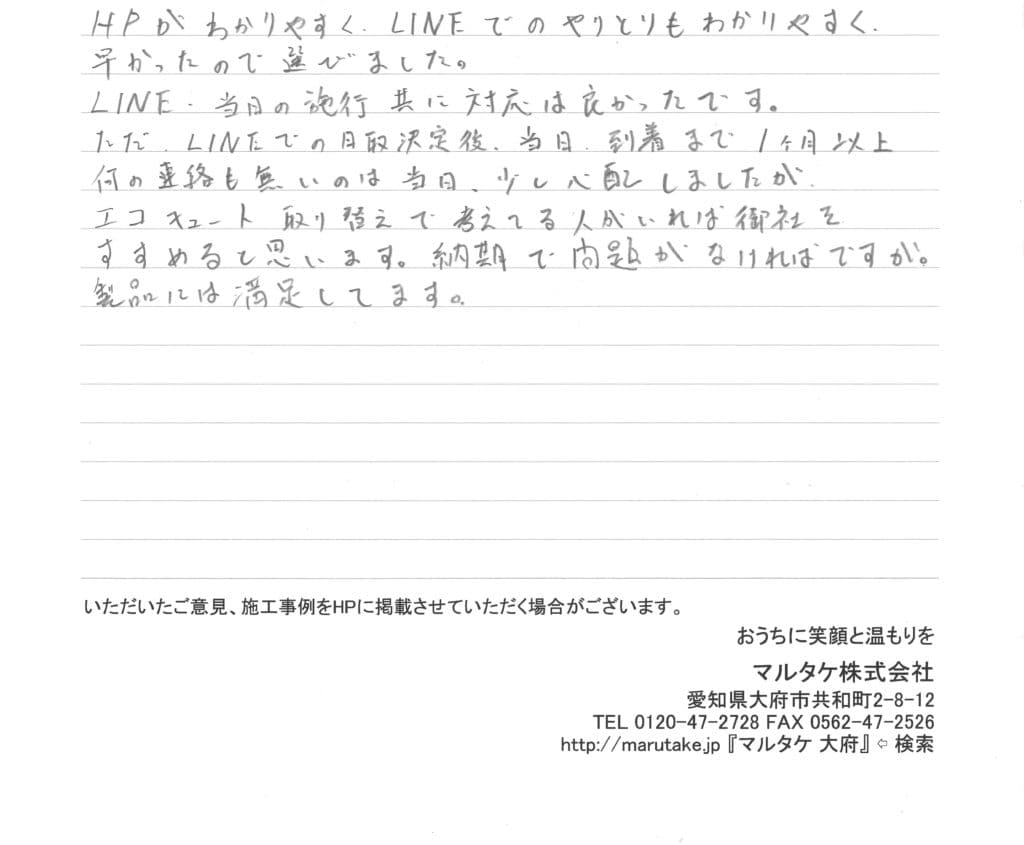 HPがわかりやすく、LINEでのやりとりもわかりやすく、
早かったので選びました。
LINE・当日の施行共に対応は良かったです。
ただ、LINEでの日取決定後、当日、到着まで1ヶ月以上
何の連絡も無いのは当日、少し心配しましたが、
エコキュート取り替えで考えてる人がいれば御社を
すすめると思います。納期で問題がなければですが。
製品には満足してます。
いただいたご意見、施工事例をHPに掲載させていただく場合がございます。
おうちに笑顔と温もりを
マルタケ株式会社
愛知県大府市共和町2-8-12
TEL 0120-47-2728 FAX 0562-47-2526
http://marutake.jp『マルタケ 大府』⇦ 検索